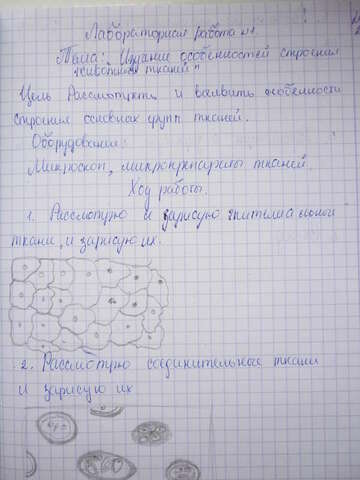 Лабораторная работа №1
Тема: "Изучение особенностей строения
животных тканей"
Цель Рассмотреть и выявить особенности
строения основных групп тканей.
Оборудование:
Микроскоп, микропрепараты тканей.
Ход работы.
1. Рассмотрю и зарисую эпителиальной
ткани, и зарисую их.
2. Рассмотрю соединительное ткани
и зарисую их